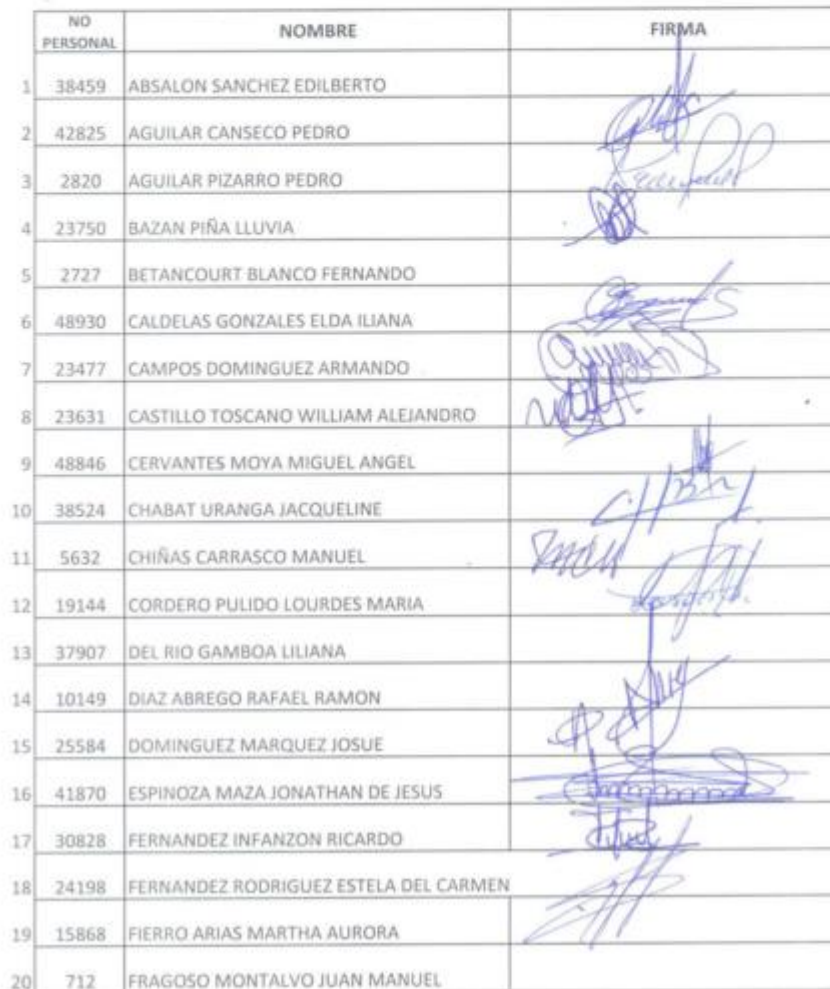 NO PERSONAL NOMBRE FIRMA
1 38459 ABSALON SANCHEZ EDILBERTO
2 42825 AGUILAR CANSECO PEDRO
3 2820 AGUILAR PIZARRO PEDRO
4 23750 BAZAN PIÑA LLUVIA
5 2727 BETANCOURT BLANCO FERNANDO
6 48930 CALDELAS GONZALES ELDA ILIANA
7 23477 CAMPOS DOMINGUEZ ARMANDO
8 23631 CASTILLO TOSCANO WILLIAM ALEJANDRO
9 48846 CERVANTES MOYA MIGUEL ANGEL
10 38524 CHABAT URANGA JACQUELINE
11 5632 CHIÑAS CARRASCO MANUEL
12 19144 CORDERO PULIDO LOURDES MARIA
13 37907 DEL RIO GAMBOA LILIANA
14 10149 DIAZ ABREGO RAFAEL RAMON
15 25584 DOMINGUEZ MARQUEZ JOSUE
16 41870 ESPINOZA MAZA JONATHAN DE JESUS
17 30828 FERNANDEZ INFANZON RICARDO
18 24198 FERNANDEZ RODRIGUEZ ESTELA DEL CARMEN
19 15868 FIERRO ARIAS MARTHA AURORA
20 712 FRAGOSO MONTALVO JUAN MANUEL